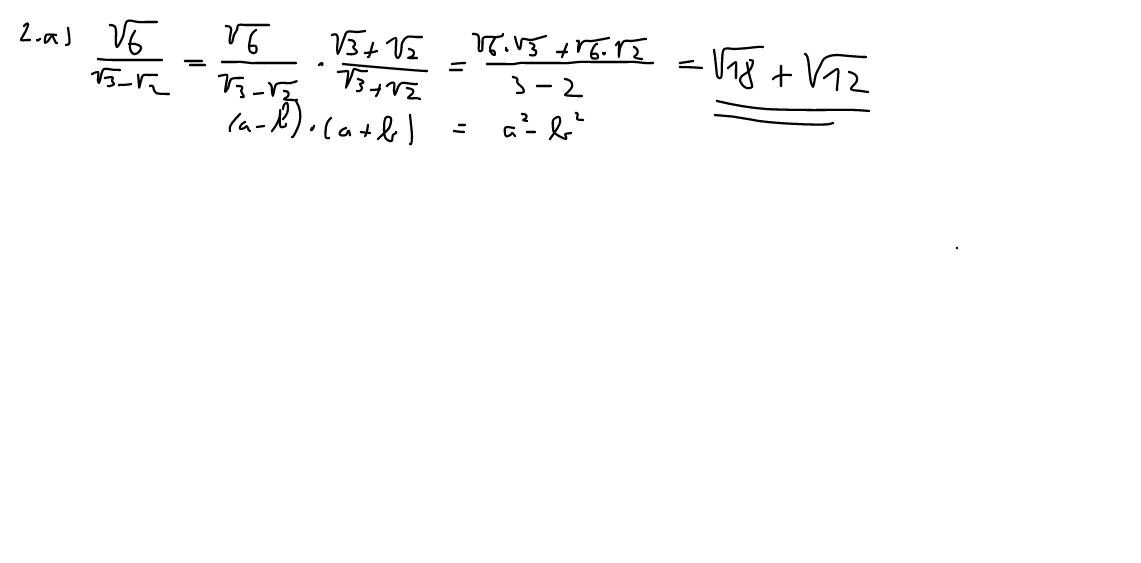 2.a) √6/(√3-√2) = √6/(√3-√2) · (√3+√2)/(√3+√2) = (√6·√3+√6·√2)/(3-2) = √18 + √12
(a-b)·(a+b) = a²-b²